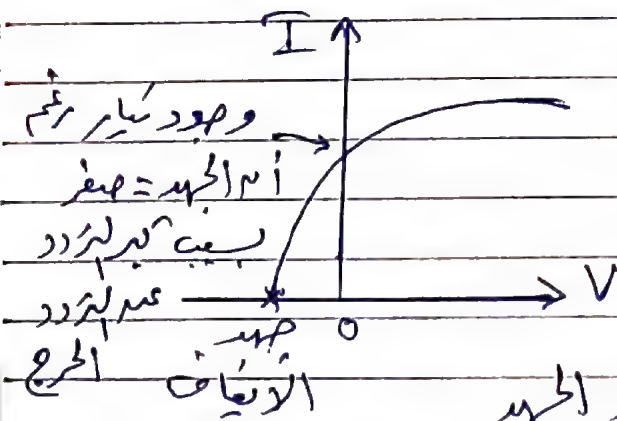 I
وجود تيار رغم
أن الجهد = صفر
بسبب كبر التردد
عن التردد
الحرج
V
0
جهد
الأيقاف
الجهد